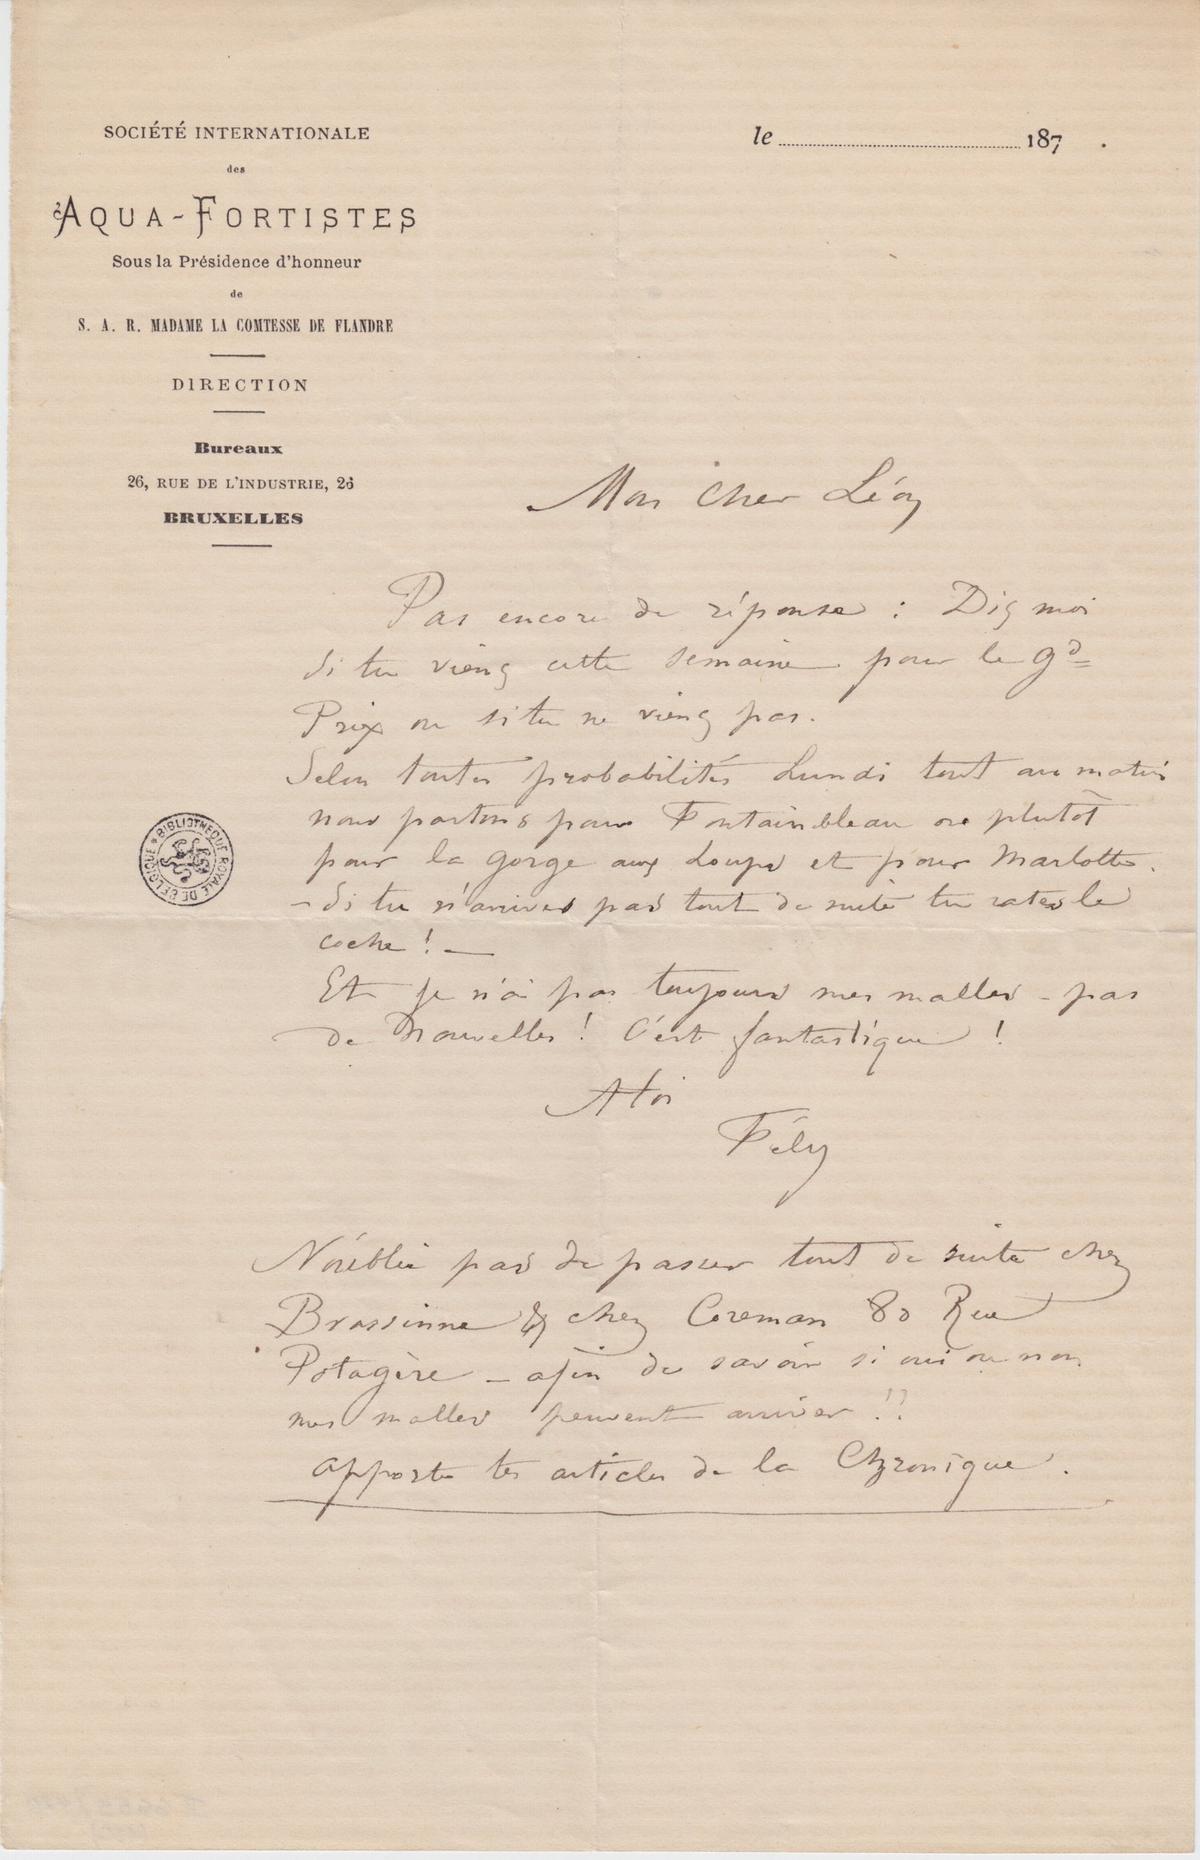 SOCIÉTÉ INTERNATIONALE
des
AQUA-FORTISTES
Sous la Présidence d'honneur
de
S. A. R. MADAME LA COMTESSE DE FLANDRE
DIRECTION
Bureaux
26, RUE DE L'INDUSTRIE, 26
BRUXELLES
le 187 .
Mon cher Léon
Pas encore de réponse : Dis moi
si tu viens cette semaine pour le gd
Prix ou si tu ne viens pas.
Selon toutes probabilités Lundi tout au matin
nous partons pour Fontainbleau ou plutôt
pour la gorge aux Loups et pour Marlotte.
– Si tu n'arrives pas tout de suite tu rates le
coche ! –
Et je n'ai pas toujours mes malles – pas
de Nouvelles ! C'est fantastique !
A toi
Fély
N'oublie pas de passer tout de suite chez
Brassinne & chez Coreman 80 Rue
Potagère – afin de savoir si oui ou non
mes malles peuvent arriver !?
apporte tes articles de la Chronique.
BIBLIOTHÈQUE ROYALE DE BELGIQUE